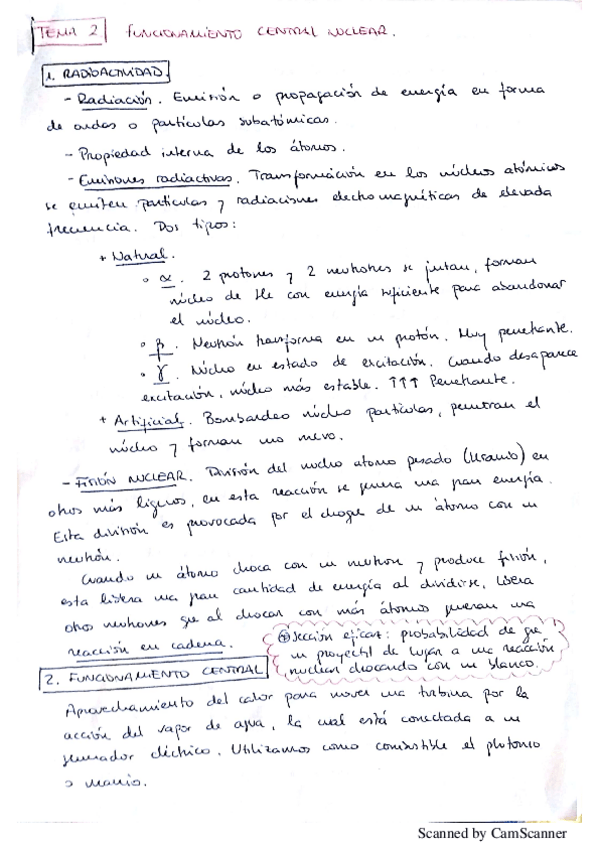 TEMA 2 FUNCIONAMIENTO CENTRAL NUCLEAR.
1. RADIOACTIVIDAD
- Radiación. Emisión o propagación de energía en forma
de ondas o partículas subatómicas.
- Propiedad interna de los átomos.
- Emisiones radiactivas. Transformación en los núcleos atómicos
se emiten partículas y radiaciones electromagnéticas de elevada
frecuencia. Dos tipos:
+ Natural.
◦ α. 2 protones y 2 neutrones se juntan, forman
núcleo de He con energía suficiente para abandonar
el núcleo.
◦ β. Neutrón transforma en un protón. Muy penetrante.
◦ γ. Núcleo en estado de excitación. Cuando desaparece
excitación, núcleo más estable. ↑↑↑ Penetrante.
+ Artificial. Bombardeo núcleo partículas, penetran el
núcleo y forman uno nuevo.
- FISIÓN NUCLEAR. División del nucleo atomo pesado (Uranio) en
otros más ligeros, en esta reacción se genera una gran energía.
Esta división es provocada por el choque de un átomo con un
neutrón.
Cuando un átomo choca con un neutron y produce fisión,
esta libera una gran cantidad de energía al dividirse, libera
otros neutrones que al chocar con más átomos generan una
reacción en cadena.
⊕ Sección eficaz: probabilidad de que
un proyectil de lugar a una reacción
nuclear chocando con un blanco.
2. FUNCIONAMIENTO CENTRAL
Aprovechamiento del calor para mover una turbina por la
acción del vapor de agua, la cual está conectada a un
generador eléctrico. Utilizamos como combustible el plutonio
o uranio.
Scanned by CamScanner